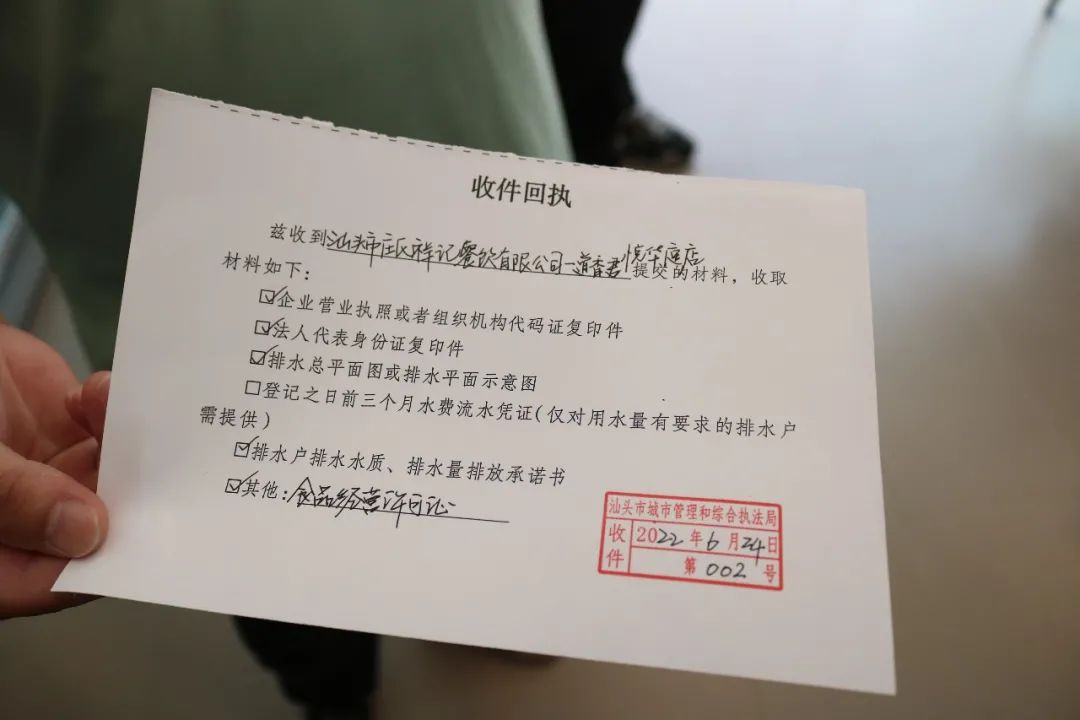 收件回执
兹收到汕头市庄氏祥记餐饮有限公司一道香君悦华庭店提交的材料，收取
材料如下：
☑企业营业执照或者组织机构代码证复印件
☑法人代表身份证复印件
☑排水总平面图或排水平面示意图
☐登记之日前三个月水费流水凭证(仅对用水量有要求的排水户
需提供)
☑排水户排水水质、排水量排放承诺书
☑其他：食品经营许可证
汕头市城市管理和综合执法局
收件
2022年6月24日
第002号